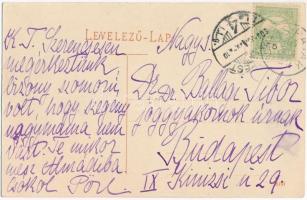 LEVELEZŐ-LAP
K. T. Szerencsésen
megérkeztünk
bizony szomorú
volt, hogy szegény
nagymama nem
Te mikor
mész Almádiba
Csókol
Nagys.
Dr. Dr. Bellai Tibor
joggyakornok úrnak
Budapest
IX Kinizsi u 29.